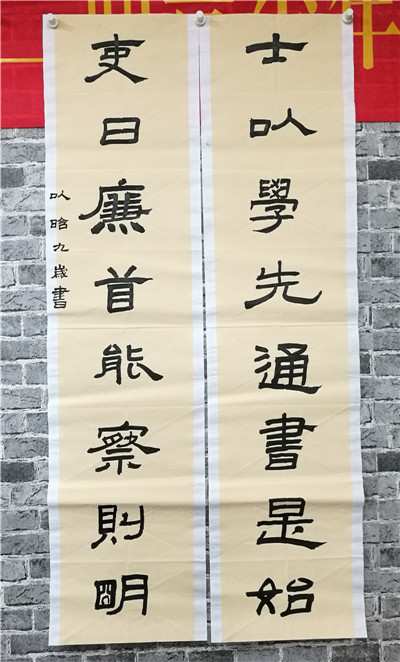 士以學先通書是始
吏曰廉首能察則明
以晗九歲書